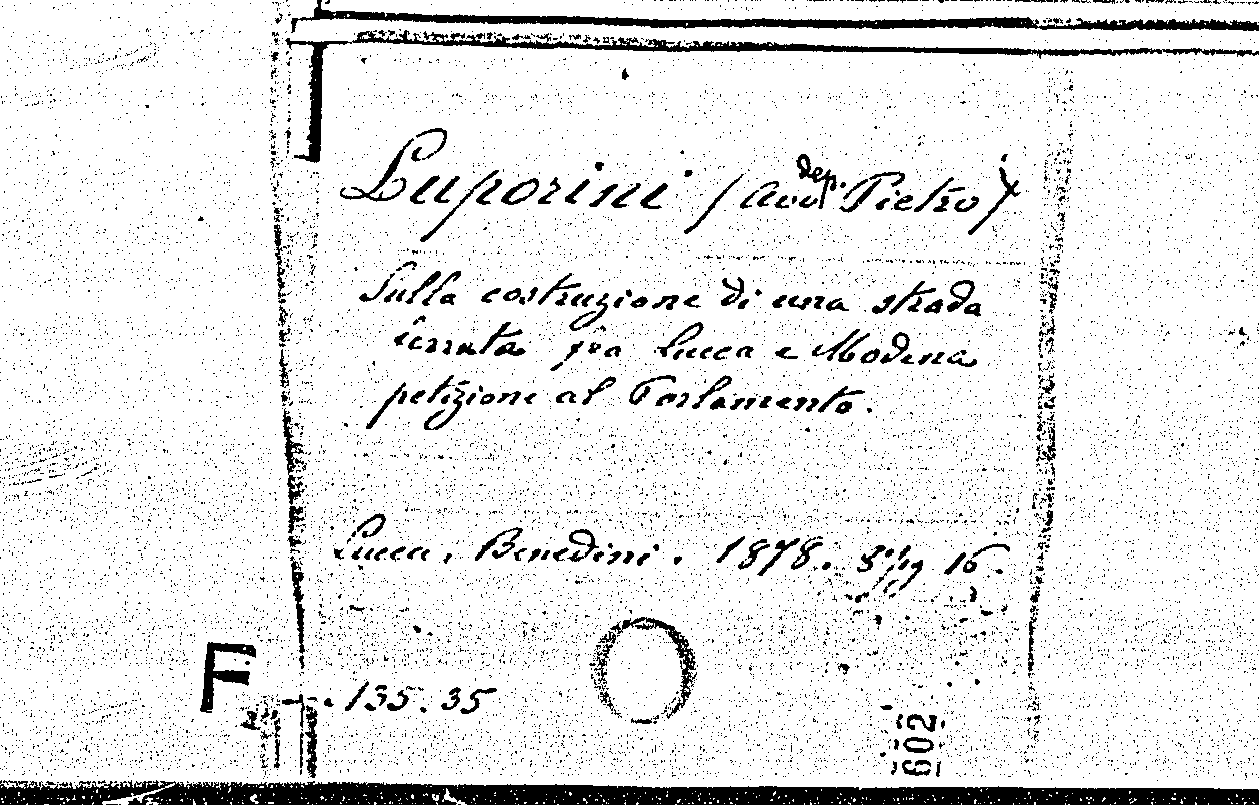 Luporini (avv. dep. Pietro)
Sulla costruzione di una strada
ferrata fra Lucca e Modena
petizione al Parlamento.
Lucca, Benedini. 1878. 8° pg 16.
F. 135.35
602